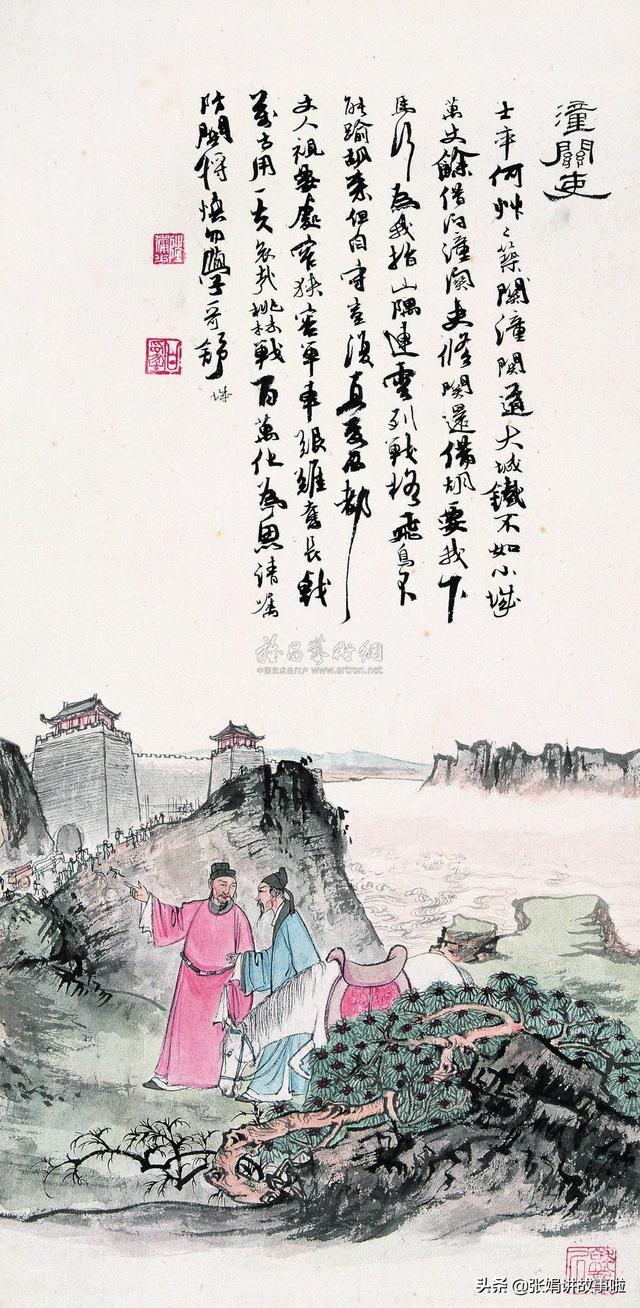 潼關吏
士卒何艸々築關潼關道大城鐵不如小城
萬丈餘借问潼関吏修関還備胡要我下
馬行為我指山隅連雲列戰格飛鳥不
能踰胡来但自守豈復憂西都
丈人視要處窄狹容單車艱難奮長戟
萬古用一夫哀哉桃林戰百萬化為魚請囑
防關將慎勿學哥舒
城
雅昌藝術網
中国艺术品门户 www.artron.net
头条 @张娟讲故事啦